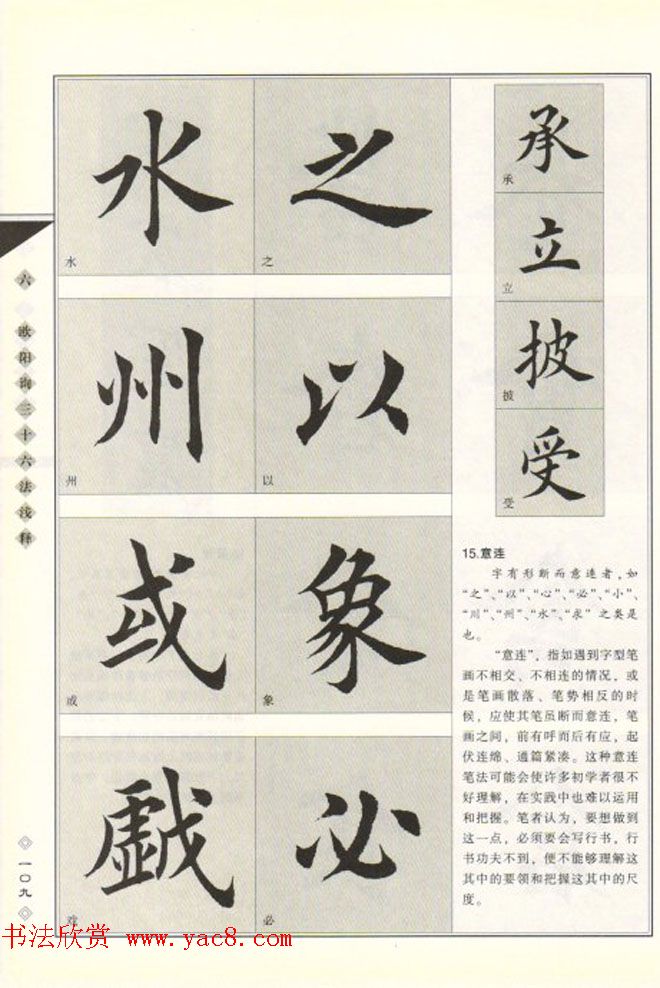 六 欧阳询三十六法浅释
一〇九
水 之
水 之
州 以
州 以
或 象
或 象
戯 必
戏 必
承
承
立
立
披
披
受
受
15.意连
字有形断而意连者，如
“之”、“以”、“心”、“必”、“小”、
“川”、“州”、“水”、“求”之类是
也。
“意连”，指如遇到字型笔
画不相交、不相连的情况，或
是笔画散落、笔势相反的时
候，应使其笔虽断而意连，笔
画之间，前有呼而后有应，起
伏连绵、通篇紧凑。这种意连
笔法可能会使许多初学者很不
好理解，在实践中也难以运用
和把握。笔者认为，要想做到
这一点，必须要会写行书，行
书功夫不到，便不能够理解这
其中的要领和把握这其中的尺
度。
书法欣赏 www.yac8.com